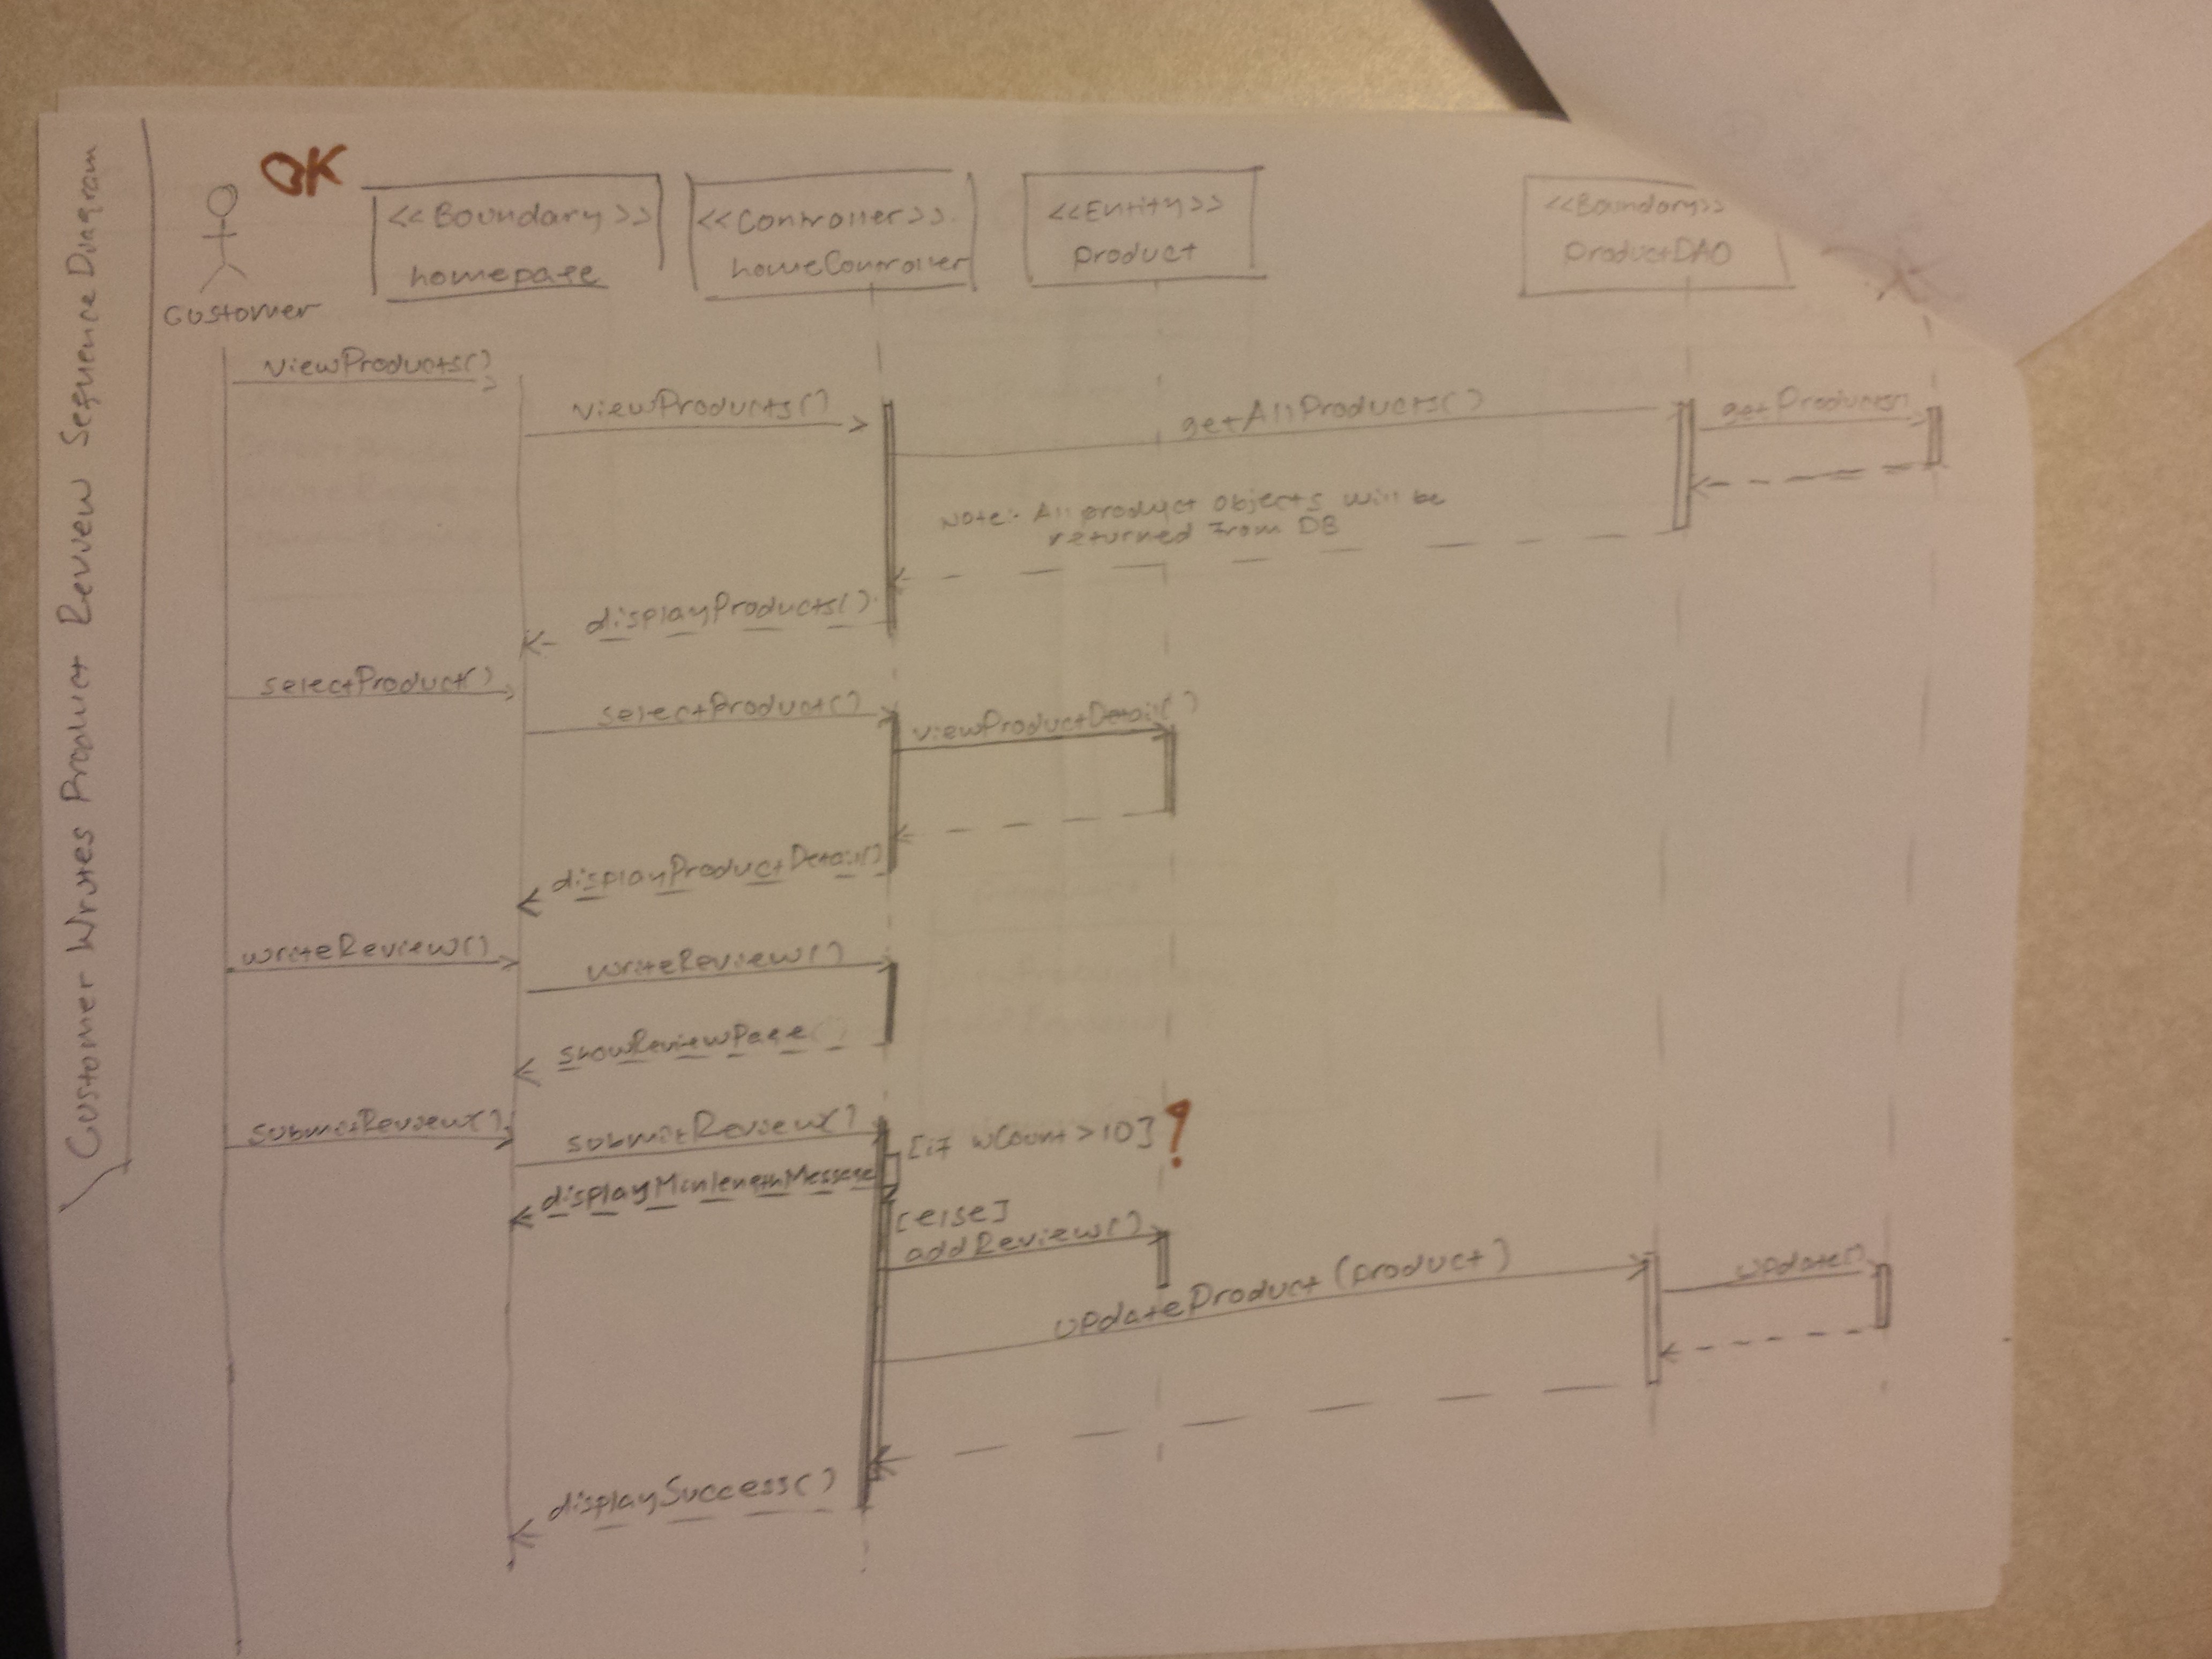 Customer Writes Product Review Sequence Diagram
OK
Customer
<<Boundary>>
homepage
<<Controller>>
homeController
<<Entity>>
product
<<Boundary>>
productDAO
viewProducts()
viewProducts()
getAllProducts()
getProducts()
Note:- All product objects will be
returned from DB
displayProducts()
selectProduct()
selectProduct()
viewProductDetail()
displayProductDetail()
writeReview()
writeReview()
showReviewPage()
submitReview()
submitReview()
[if wCount >10] ?
displayMinlengthMessage
[else]
addReview()
updateProduct(product)
update()
displaySuccess()